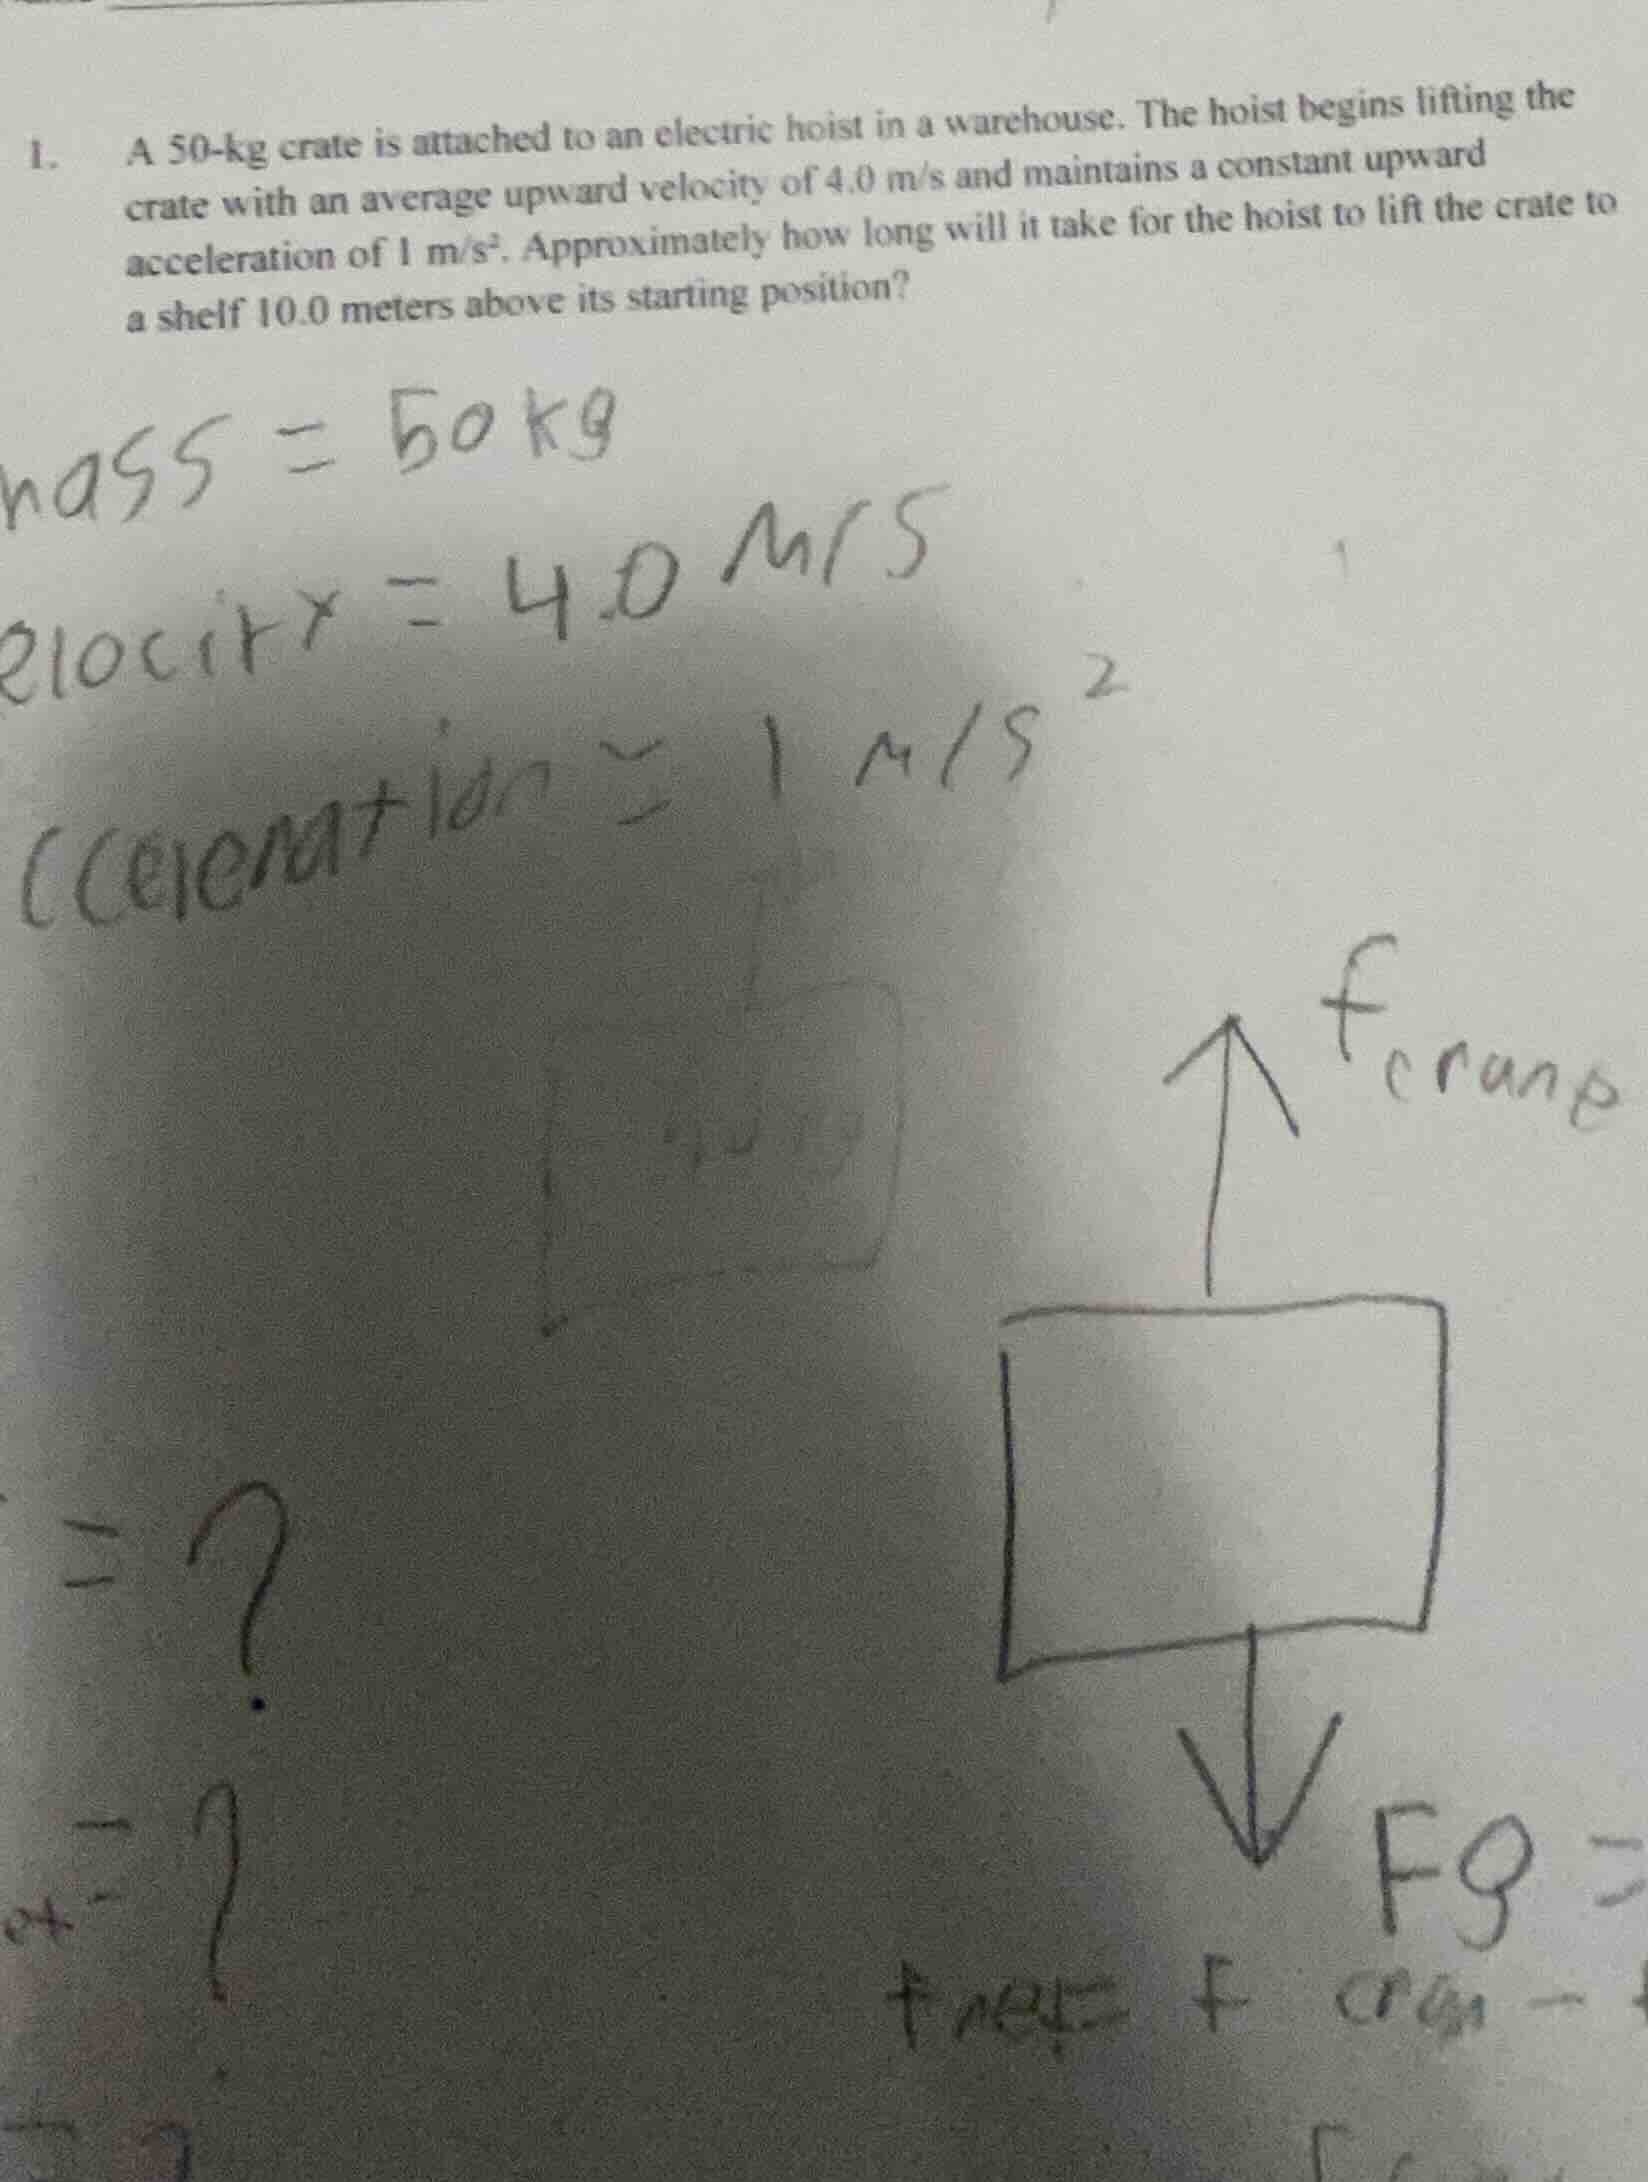 1. A 50-kg crate is attached to an electric hoist in a warehouse. The hoist begins lifting the
crate with an average upward velocity of 4.0 m/s and maintains a constant upward
acceleration of 1 m/s². Approximately how long will it take for the hoist to lift the crate to
a shelf 10.0 meters above its starting position?
mass = 50 kg
elocity = 4.0 m/s
cceleration = 1 m/s²
f crane
= ?
= ?
Fg =
fnet = f cran -